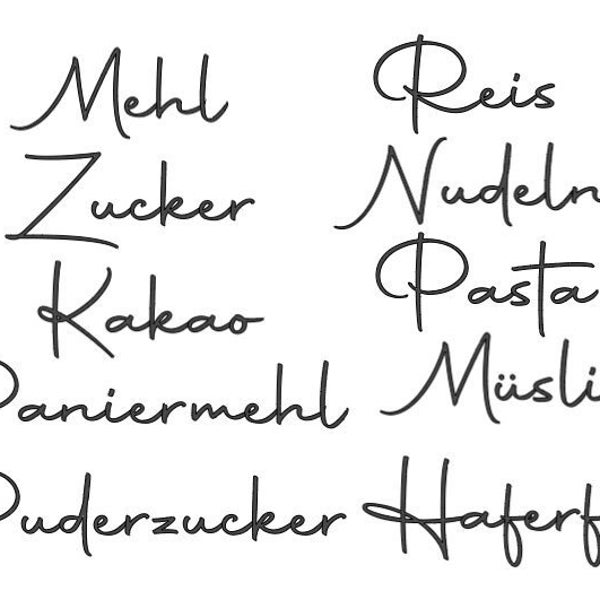 Mehl
Zucker
Kakao
Paniermehl
Puderzucker
Reis
Nudeln
Pasta
Müsli
Haferf